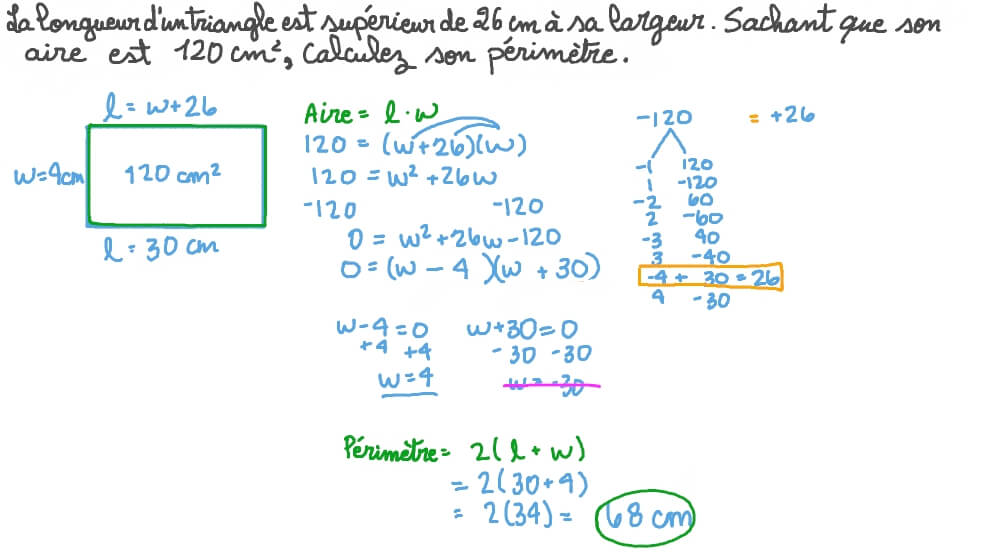 La longueur d'un triangle est supérieur de 26 cm à sa largeur. Sachant que son
aire est 120 cm², Calculez son périmètre.
l = w+26
w=4cm
120 cm²
l = 30 cm
Aire = l · w
120 = (w+26)(w)
120 = w² +26w
-120 -120
0 = w² +26w-120
0 = (w - 4)(w + 30)
w-4=0
+4 +4
w=4
w+30=0
-30 -30
w= -30
-120 = +26
-1 120
1 -120
-2 60
2 -60
-3 40
3 -40
-4 + 30 = 26
4 -30
Périmètre = 2(l + w)
= 2(30+4)
= 2(34) = 68 cm